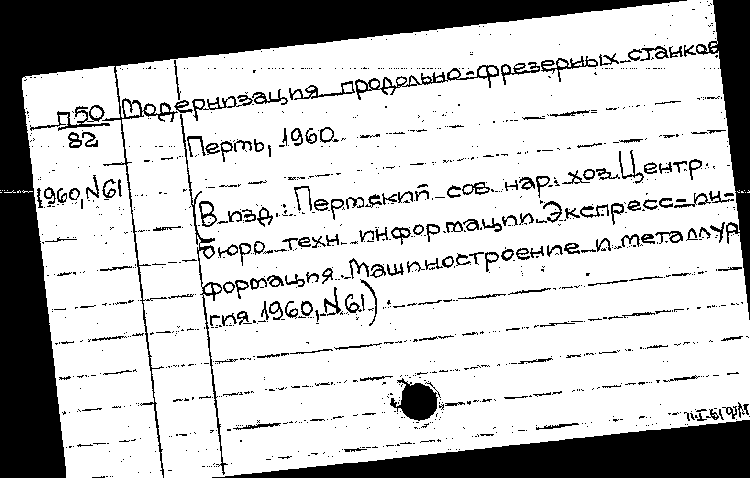 П50 Модернизация продольно-фрезерных станков
82
Пермь, 1960
1960, N61
(В изд.: Пермский сов. нар. хоз. Центр.
бюро техн. информации. Экспресс-ин-
формация. Машиностроение и металлур
гия. 1960, N61).